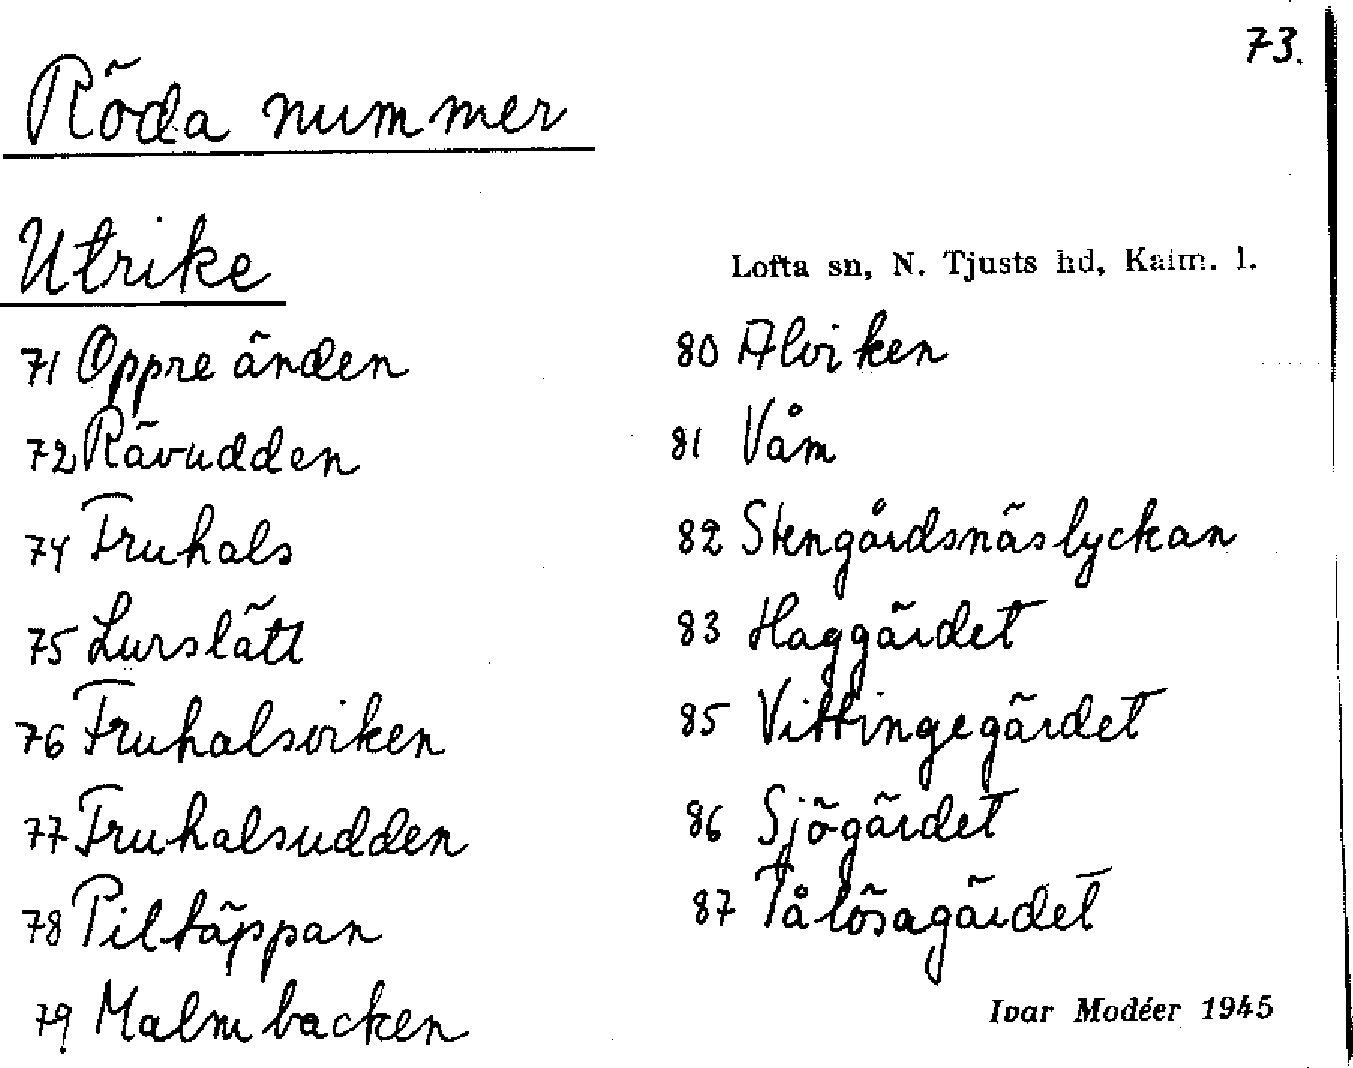 73.
Röda nummer
Utrike
Lofta sn, N. Tjusts hd, Kalm. l.
71 Oppre änden
72 Rävudden
74 Fruhals
75 Lurslätt
76 Fruhalsviken
77 Fruhalsudden
78 Piltäppan
79 Malmbacken
80 Alviken
81 Våm
82 Stengårdsnäslyckan
83 Haggärdet
85 Vittingegärdet
86 Sjögärdet
87 Tålösagärdet
Ivar Modéer 1945